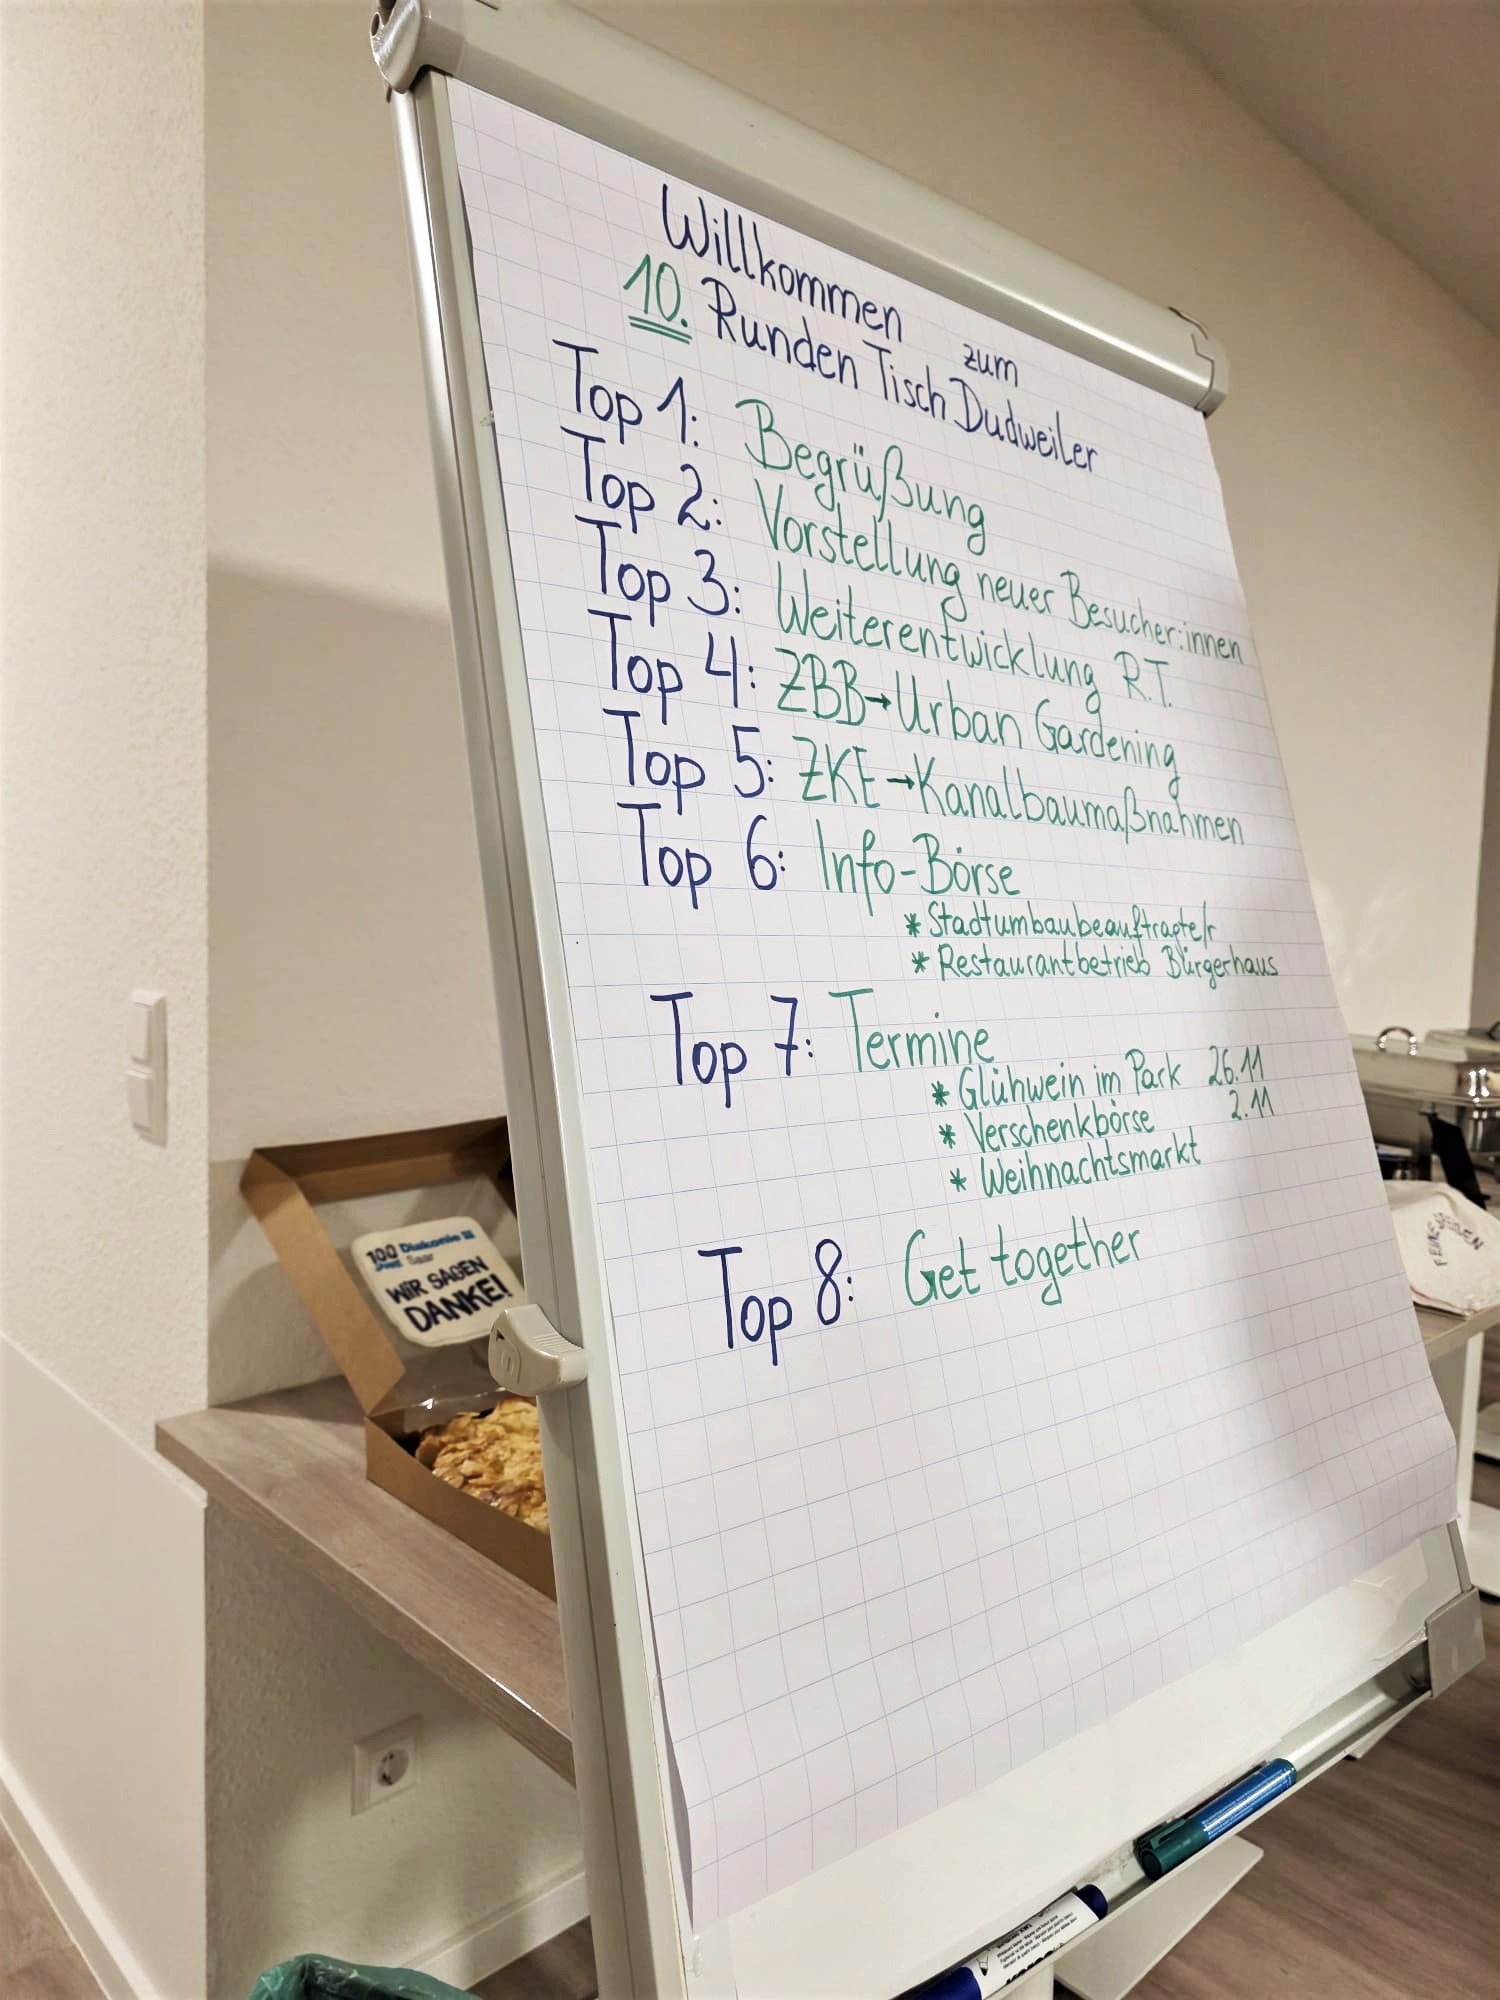 Willkommen zum
10. Runden Tisch Dudweiler
Top 1: Begrüßung
Top 2: Vorstellung neuer Besucher:innen
Top 3: Weiterentwicklung R.T.
Top 4: ZBB→Urban Gardening
Top 5: ZKE→Kanalbaumaßnahmen
Top 6: Info-Börse
* Stadtumbaubeauftragte/r
* Restaurantbetrieb Bürgerhaus
Top 7: Termine
* Glühwein im Park 26.11
* Verschenkbörse 2.11
* Weihnachtsmarkt
Top 8: Get together
100 Diakonie
Saar
WIR SAGEN
DANKE!